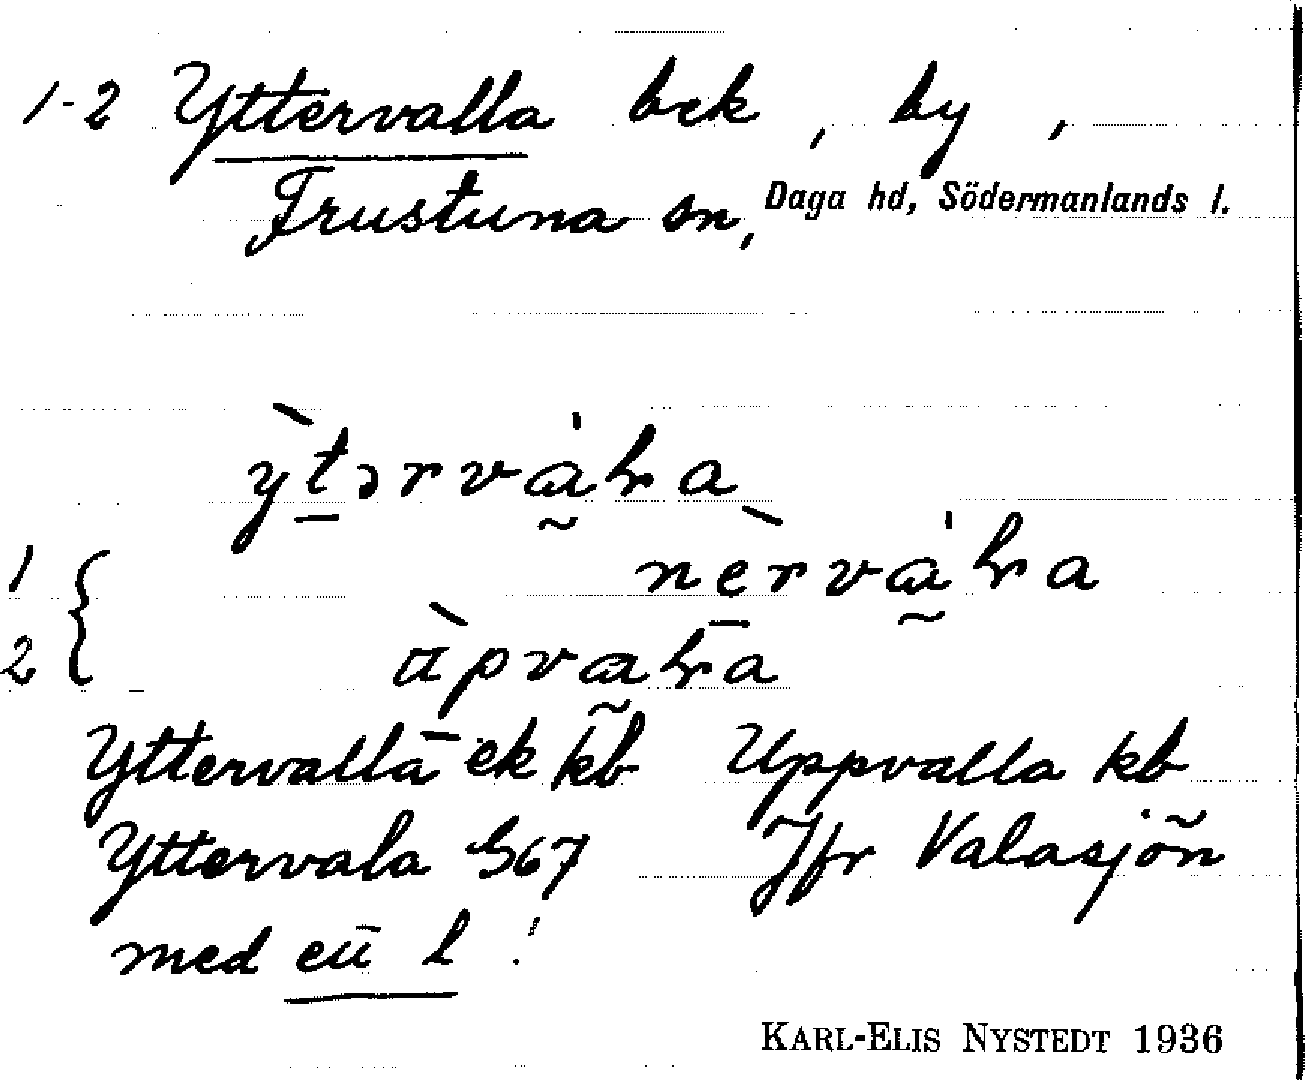 1-2 Yttervalla bek, by,
Frustuna sn, Daga hd, Södermanlands l.
1
2
Yttervalla ek kb Uppvalla kb
Yttervala G67 Jfr Valasjön
med en l !
KARL-ELIS NYSTEDT 1936